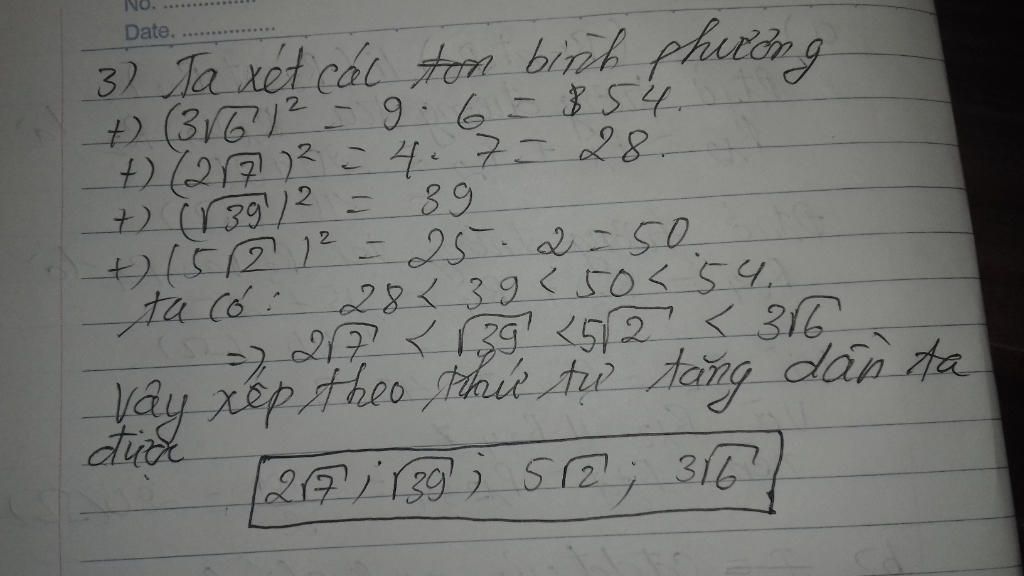 No. ................
Date. ................
3) Ta xét các bình phương
+) (3√6)² = 9 . 6 = 54.
+) (2√7)² = 4 . 7 = 28.
+) (√39)² = 39
+) (5√2)² = 25 . 2 = 50.
ta có: 28 < 39 < 50 < 54.
=> 2√7 < √39 < 5√2 < 3√6
Vậy xếp theo thứ tự tăng dần ta
được
2√7 ; √39 ; 5√2 ; 3√6